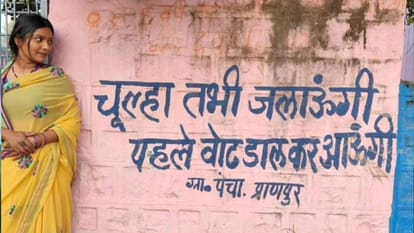 चूल्हा तभी जलाऊंगी
पहले वोट डालकर आऊंगी
ग्रा. पंचा. प्राणपुर